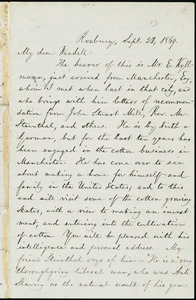 Roxbury, Sept. 28, 1869.
My dear Wendell:
The bearer of this is Mr. E.
, just arrived from Manchester, Eng.,
whom I met when last in that city, and
who brings with him letters of recommen-
dation from John Stuart Mill, Rev. Mr.
Steinthal, and others. He is by birth a
German, but for the last ten years has
been engaged in the cotton business in
Manchester. He has come over to see
about making a home for himself and
family in the United States; and to this
end will visit some of the cotton growing
States, with a view to making an invest-
ment, and entering into the cultivation
of cotton. You will be pleased with his
intelligence and personal address. My
friend Steinthal says of him – "He is a
thoroughgoing liberal man, who was Anti-
Slavery as the natural result of his general